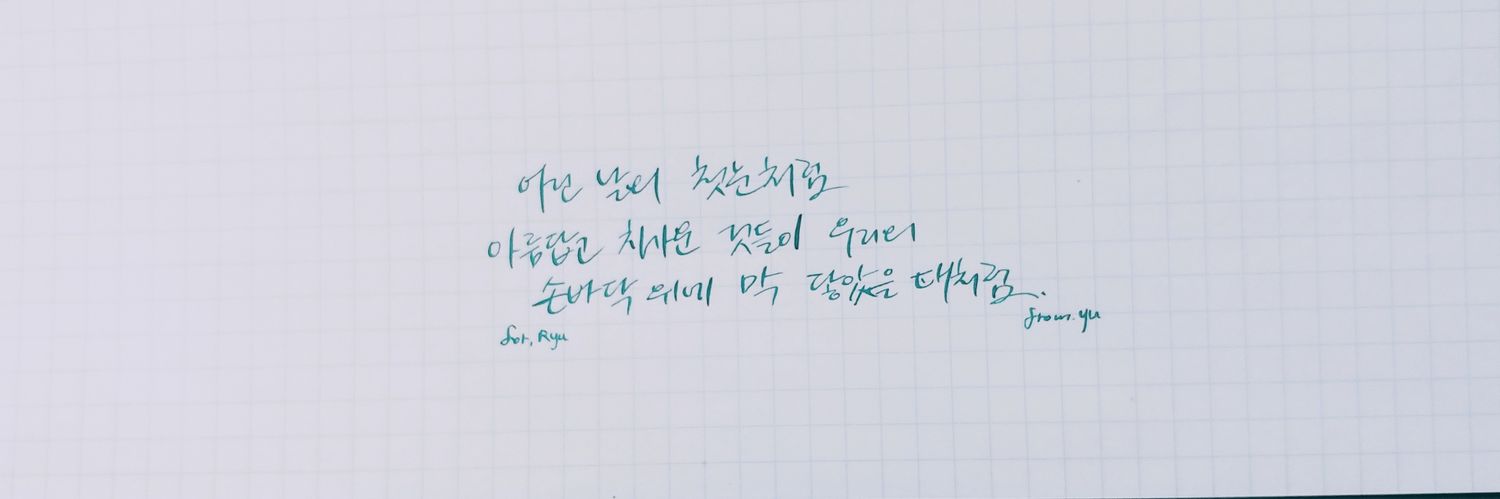 어린 날의 첫눈처럼
아름답고 차가운 것들이 우리의
손바닥 위에 막 닿았을 때처럼.
for, Ryu
from. yu